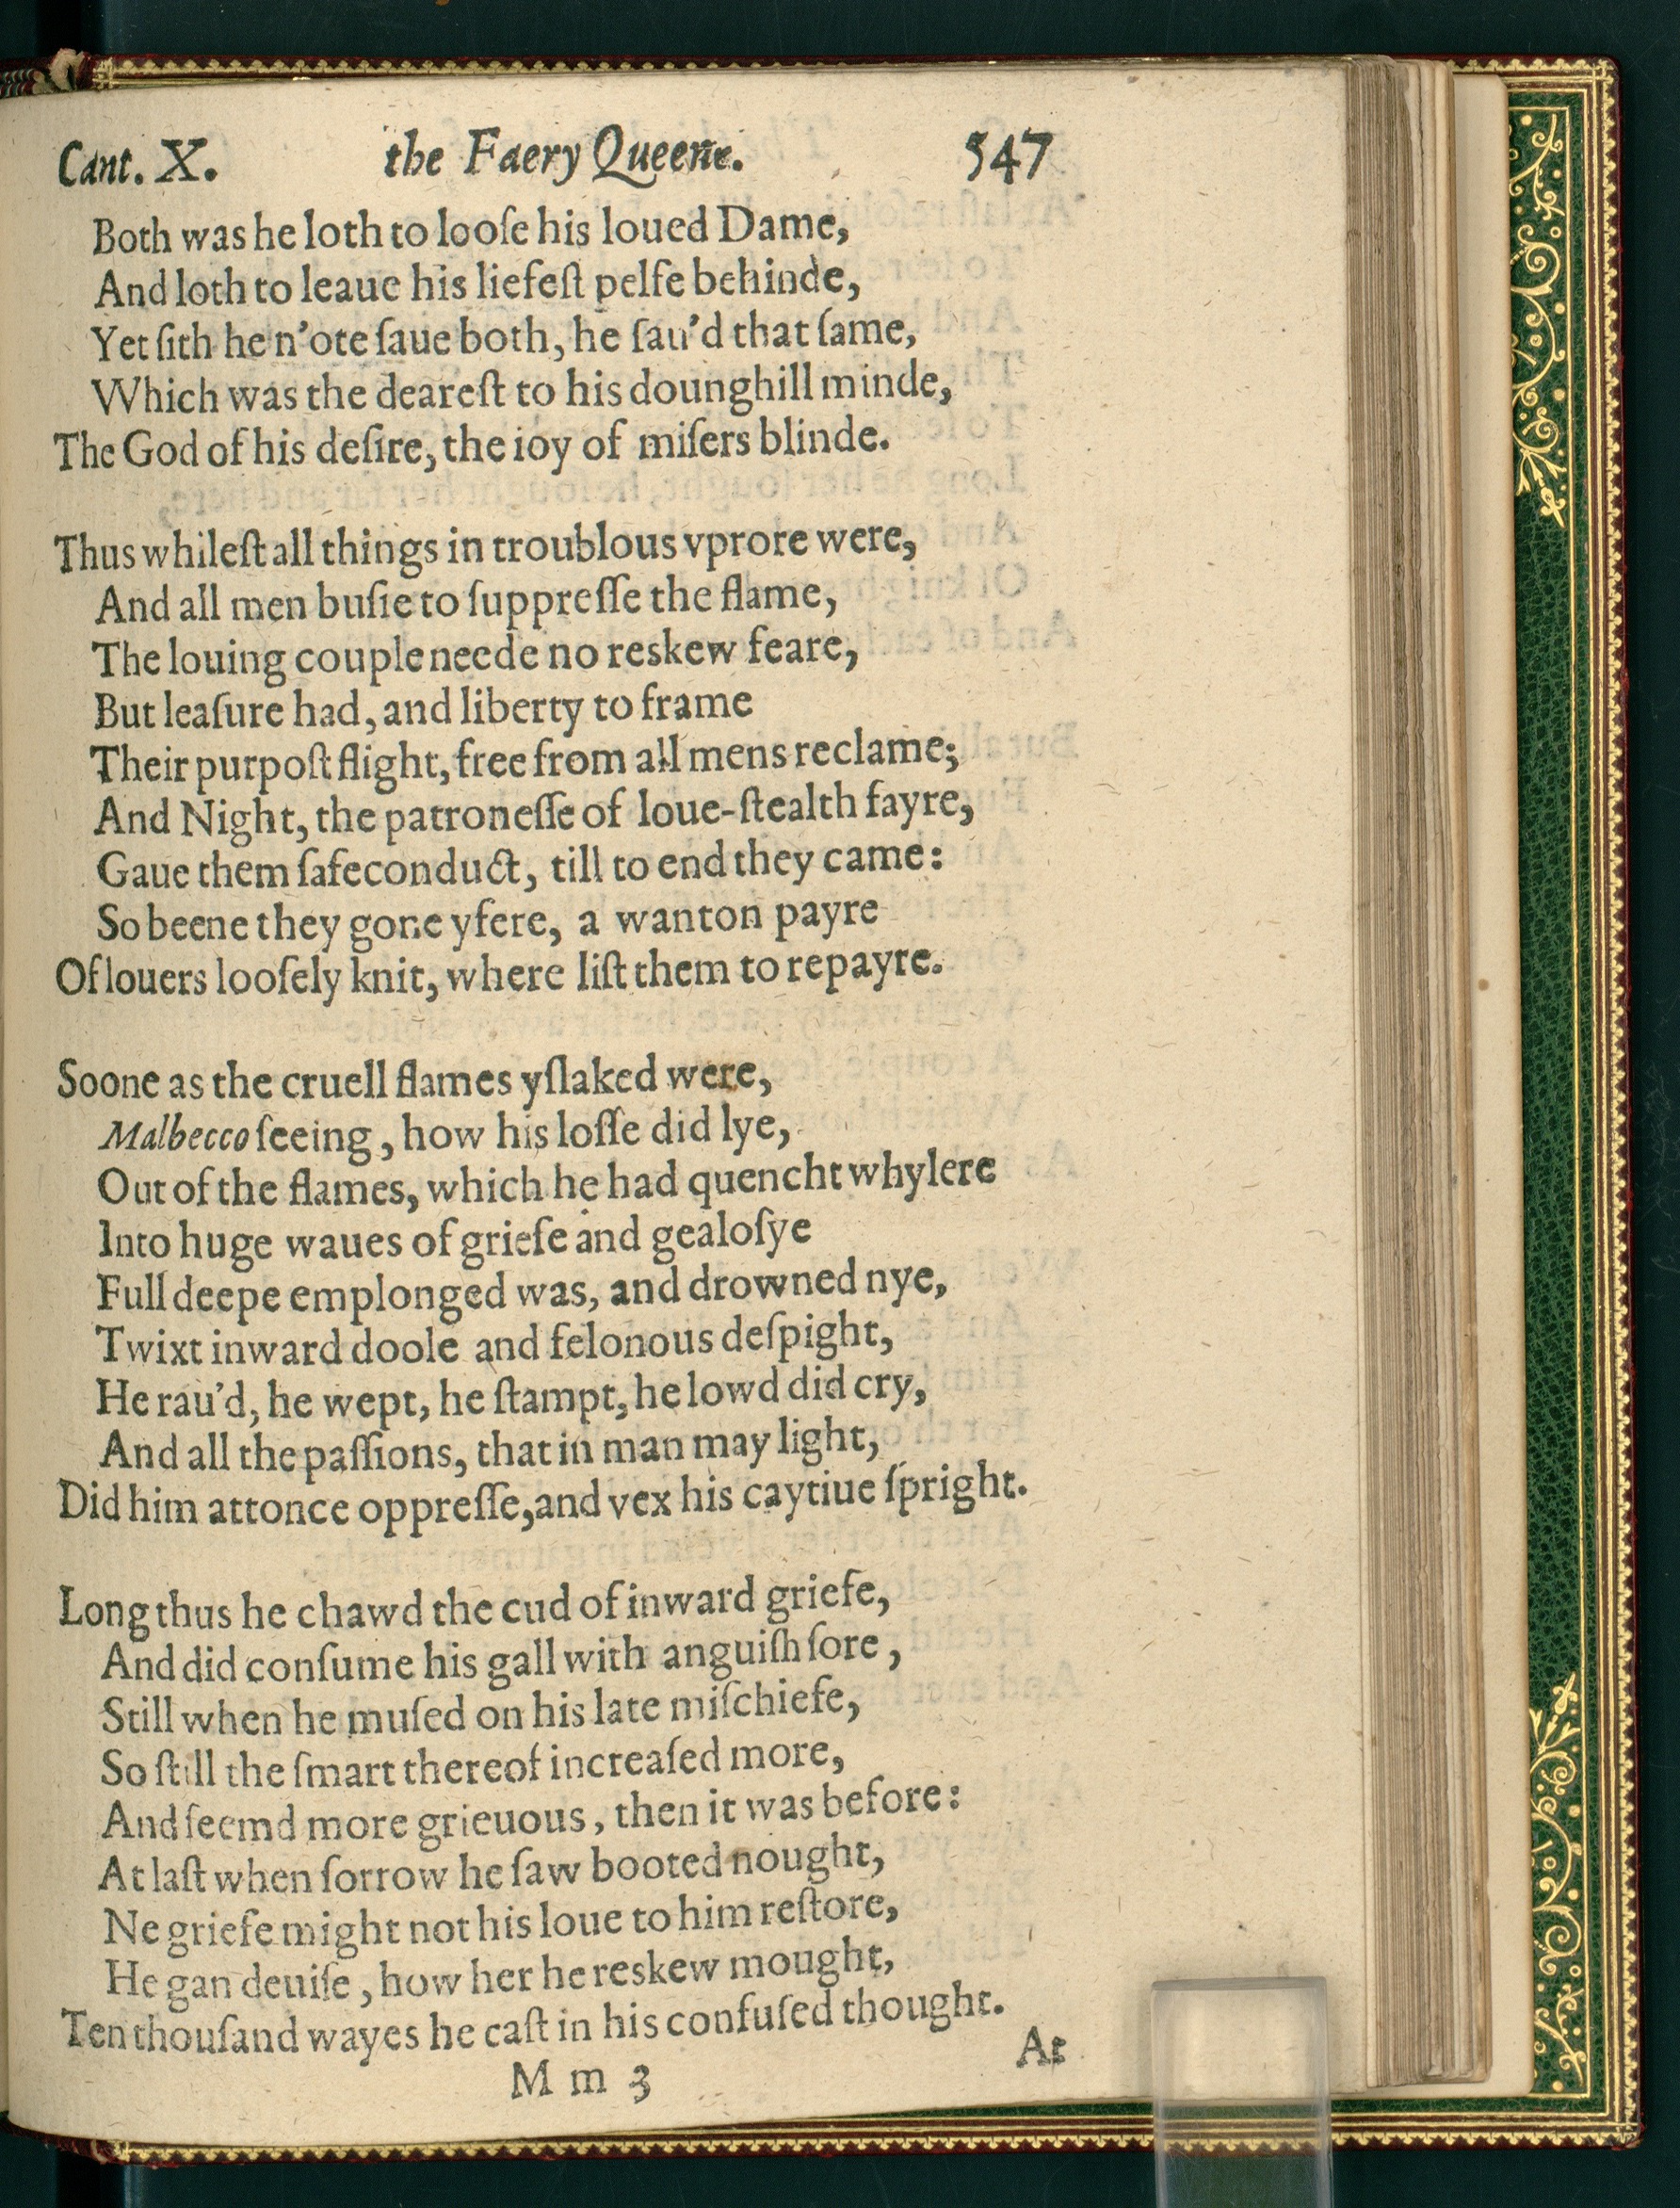 Cant. X. the Faery Queene. 547
Both was he loth to looſe his loued Dame,
And loth to leaue his liefeſt pelfe behinde,
Yet ſith he n'ote ſaue both, he ſau'd that ſame,
Which was the deareſt to his dounghill minde,
The God of his deſire, the ioy of miſers blinde.
Thus whileſt all things in troublous vprore were,
And all men buſie to ſuppreſſe the flame,
The louing couple neede no reskew feare,
But leaſure had, and liberty to frame
Their purpoſt flight, free from all mens reclame;
And Night, the patroneſſe of loue-ſtealth fayre,
Gaue them ſafeconduct, till to end they came:
So beene they gone yfere, a wanton payre
Of louers looſely knit, where liſt them to repayre.
Soone as the cruell flames yſlaked were,
Malbecco ſeeing, how his loſſe did lye,
Out of the flames, which he had quencht whylere
Into huge waues of griefe and gealoſye
Full deepe emplonged was, and drowned nye,
Twixt inward doole and felonous deſpight,
He rau'd, he wept, he ſtampt, he lowd did cry,
And all the paſſions, that in man may light,
Did him attonce oppreſſe, and vex his caytiue ſpright.
Long thus he chawd the cud of inward griefe,
And did conſume his gall with anguiſh ſore,
Still when he muſed on his late miſchiefe,
So ſtill the ſmart thereof increaſed more,
And ſeemd more grieuous, then it was before:
At laſt when ſorrow he ſaw booted nought,
Ne griefe might not his loue to him reſtore,
He gan deuiſe, how her he reskew mought,
Ten thouſand wayes he caſt in his confuſed thought.
M m 3 At